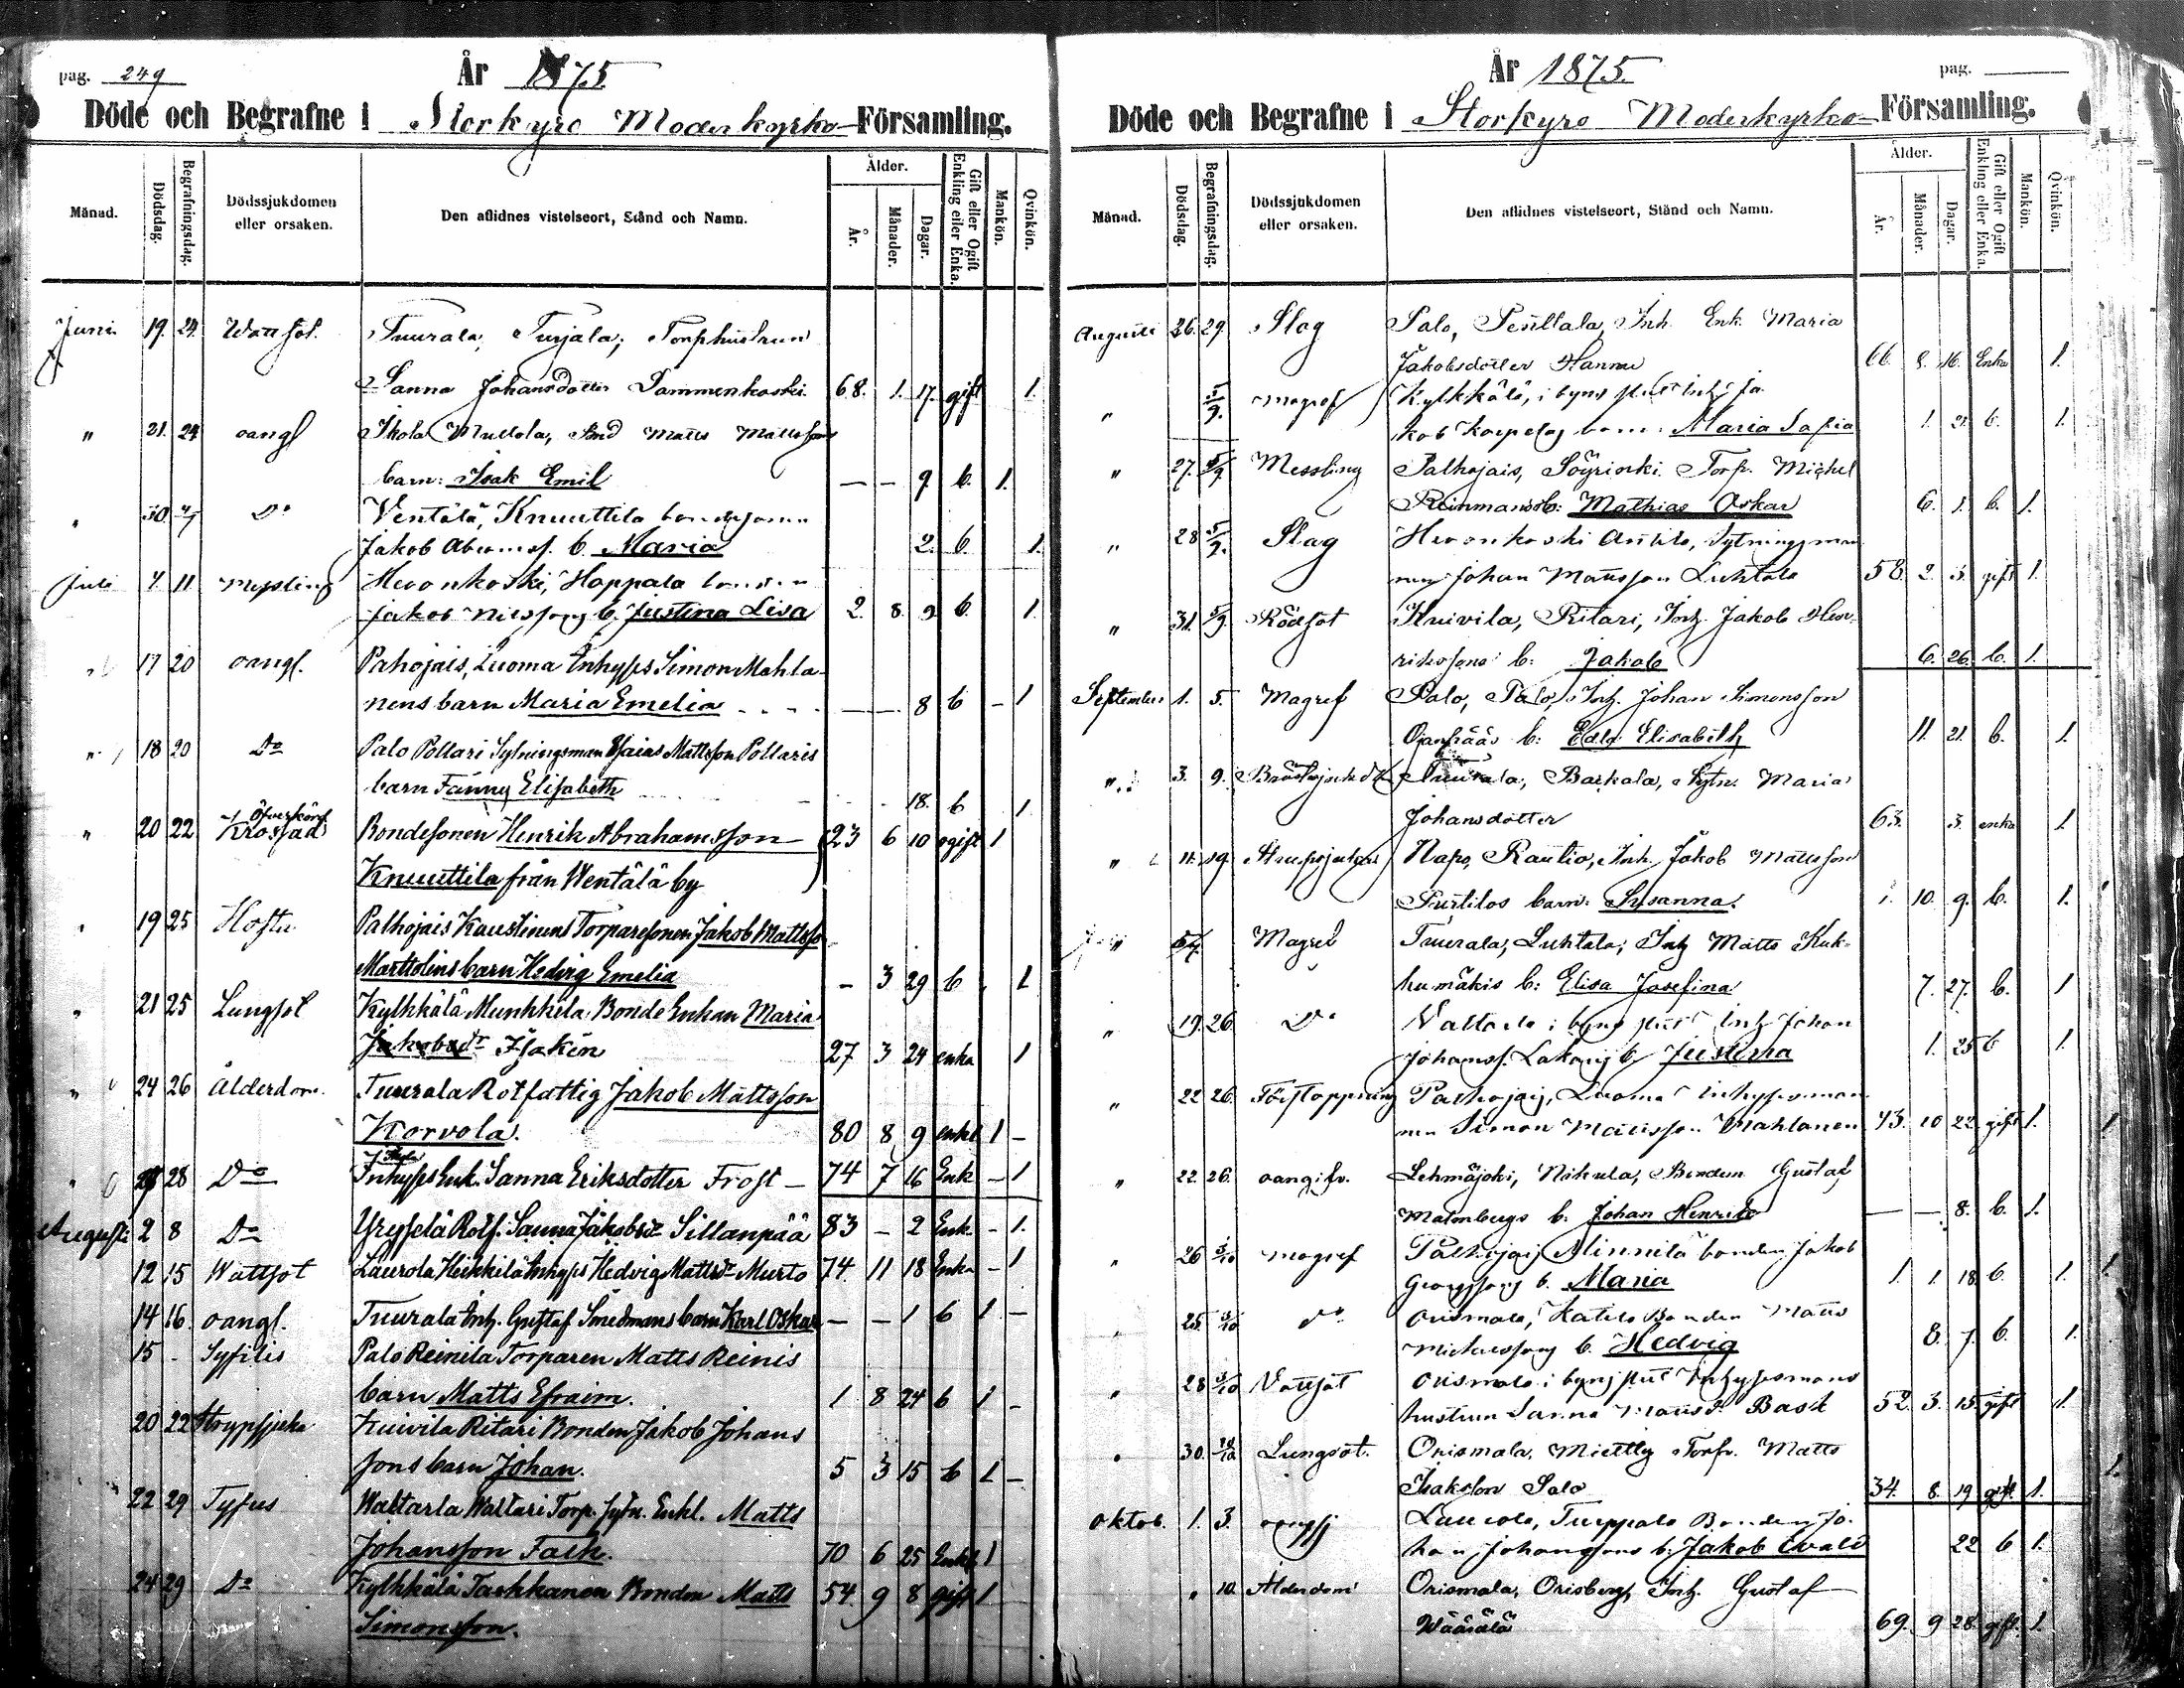 pag. 249
År 1875
Döde och Begrafne i Storkyro Moderkyrko- Församling.
Månad. Dödsdag. Begrafningsdag. Dödssjukdomen eller orsaken. Den aflidnes vistelseort, Stånd och Namn. Ålder. År. Månader. Dagar. Gift eller Ogift Enkling eller Enka. Mankön. Qvinkön.
Juni 19. 24. Wattsot. Tuurala, Turjala, Torphustrun
Sanna Johansdotter Dammenkoski. 68. 1. 17. gift 1.
" 21. 24 oangf Ikola Mullola, Matts Mattssons
barn: Isak Emil — — 9. b. 1.
" 30. Do Ventälä, Knuuttila bondesonen
Jakob Abramsf. b. Maria 2. b. 1.
Juli 7. 11 Messling Hevonkoski, Hoppala bonden
Jakob Nilssons b. Justina Lisa 2. 8. 9 b. 1
" 17 20 oangf. Palhojais, Luoma Inhyses Simon Mahla-
nens barn Maria Emelia — — 8 b – 1
" 18 20 Do Palo Pollari Sytningsman Esaias Mattsson Pollaris
barn Fanny Elisabeth 18. b 1
" 20 22 Öfverkörd Krossad Bondesonen Henrik Abrahamsson 23 6 10 ogift 1
Knuuttila från Wentälä by
" 19 25 Hosta Palhojais Kaustinens Torparesonen Jakob Mattsso
Marttolins barn Hedvig Emelia – 3 29 b 1
" 21 25 Lungsot Kylkkälä Munkkila Bonde Enkan Maria
Jakobsdr Isakin 27 3 24 enka 1
" 24 26 Ålderdom. Tuurala Rotfattig Jakob Mattsson
Korvola. 80 8 9 enkl 1 –
" 28 Do Inhyses Enk. Sanna Eriksdotter Frost – 74 7 16 Enk – 1
Augusti 2 8 Do Yryselä Rotf. Sanna Jakobsdr Sillanpää 83 – 2 Enk – 1.
12 15 Wattsot Laurola Heikkilä Inhyses Hedvig Mattsdr Murto 74 11 18 Enka – 1
14 16. oangf. Tuurala Inh. Gustaf Smedmans barn Karl Oskar — – 1 b 1 –
15 – Syfilis Palo Reinila Torparen Matts Reinis
barn Matts Efraim. 1 8 24 b 1 –
20 22 Strypsjuka Kuivila Ritari Bonden Jakob Johans
sons barn Johan. 5 3 15 b 1 –
22 29 Tyfus Waltarla Waltari Torp. sytn. Enkl. Matts
Johansson Falk. 70 6 25 Enkl 1
24 29 Do Kylkkälä Tarkkanen Bonden Matts 54 9 8 gift 1
Simonsson.
År 1875.
pag.
Döde och Begrafne i Storkyro Moderkyrko- Församling.
Månad. Dödsdag. Begrafningsdag. Dödssjukdomen eller orsaken. Den aflidnes vistelseort, Stånd och Namn. Ålder. År. Månader. Dagar. Gift eller Ogift Enkling eller Enka. Mankön. Qvinkön.
Augusti 26. 29. Slag Palo, Penttala, Inh. Enk. Maria
Jakobsdotter Hannu 66 8. 16. Enka 1.
" 5/9. Magref Kylkkälä, i byns Inh. Ja-
kob Karpelas barn: Maria Sofia 1. 21. b. 1.
" 27. 5/9. Messling Palhojais, Torp. Michel
Reinmans b: Mathias Oskar 6. 1. b. 1.
" 28 5/9. Slag Hevonkoski Anttila, Sytningsman
nen Johan Mattsson Luhtala 58. 2. 3. gift 1.
" 31. 5/9 Rödsot Kuivila, Ritari, Inh. Jakob Hen-
rikssons b: Jakob 6. 26. b. 1.
September 1. 5. Magref Palo, Palo, Inh. Johan Simonsson
Ojanpääs b: Edla Elisabeth 11. 21. b. 1.
" 3. 9. Bröstsjukdom Tuurala, Barkala, Sytn. Maria
Johansdotter 63. 3. enka 1.
" 11. 19. Strupsjukan Napo, Rautio, Inh. Jakob Mattsson
Purtilos barn: Susanna. 1. 10. 9. b. 1.
" Magref Tuurala, Luhtala, Inh Matts Kuk-
kumäkis b: Elisa Josefina 7. 27. b. 1
" 19. 26. Do Valtarla i byns Inh Johan
Johanss. Lakanj b. Justina 1. 25 b 1
" 22 26. Förstoppning Palhojais, Luoma inhysesman
nen Simon Mattsson Mahlanen 43. 10 22. gift 1.
" 22. 26. oangifv. Lehmäjoki, Nikula, Bonden Gustaf
Malmbergs b. Johan Henrik — — 8. b. 1.
" 26 3/10 magref Palhojais Minnilä bonden Jakob
Georgssons b. Maria 1. 1. 18. b. 1.
" 25. 3/10 Do Orismala, Katila Bonden Matts
Michelssons b. Hedvig 8. 7. b. 1.
" 28 3/10 Vattsot Orismala i byns Inhysesmans
hustrun Sanna Mattsdr. Bask 52. 3. 15. gift 1.
" 30. 10/10 Lungsot. Orismala, Miettly Torp. Matts
Isaksson Salo 34. 8. 19 gift. 1.
Oktob. 1. 3. Laurola, Turppala Bonden Jo-
han Johanssons b: Jakob Evald 22 b 1.
" 10. Ålderdom Orismala, Orisberg, Inh. Gustaf
Wäärälä 69. 9 28. gift. 1.